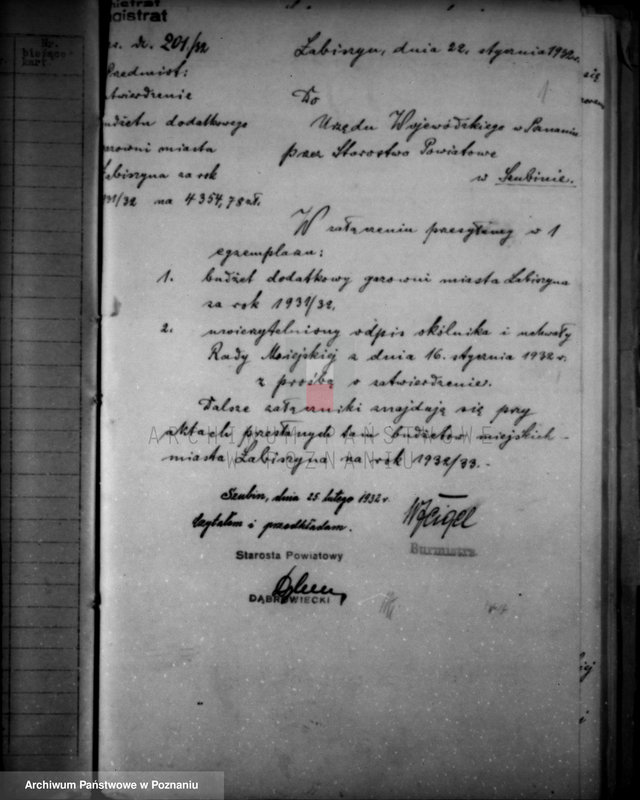 Magistrat
201/32
Łabiszyn, dnia 22. stycznia 1932 r.
Przedmiot:
zatwierdzenie
budżetu dodatkowego
gazowni miasta
Łabiszyna za rok
1931/32 na 4354,78 zł.
Do
Urzędu Wojewódzkiego w Poznaniu
przez Starostwo Powiatowe
w Szubinie.
W załączeniu przesyłamy w 1
egzemplarzu:
1. budżet dodatkowy gazowni miasta Łabiszyna
za rok 1931/32,
2. uwierzytelniony odpis okólnika i uchwały
Rady Miejskiej z dnia 16. stycznia 1932 r.
z prośbą o zatwierdzenie.
Dalsze załączniki znajdują się przy
aktach przesłanych tam budżetów miejskich
miasta Łabiszyna na rok 1932/33.
ARCHIWUM PAŃSTWOWE
W POZNANIU
Szubin, dnia 25 lutego 1932 r.
Czytałem i przedkładam.
Burmistrz.
Starosta Powiatowy
DĄBROWIECKI
Nr.
bieżące
kart
Archiwum Państwowe w Poznaniu